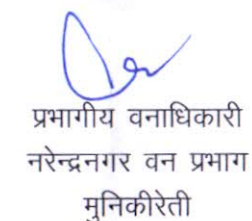 प्रभागीय वनाधिकारी
नरेन्द्रनगर वन प्रभाग
मुनिकीरेती